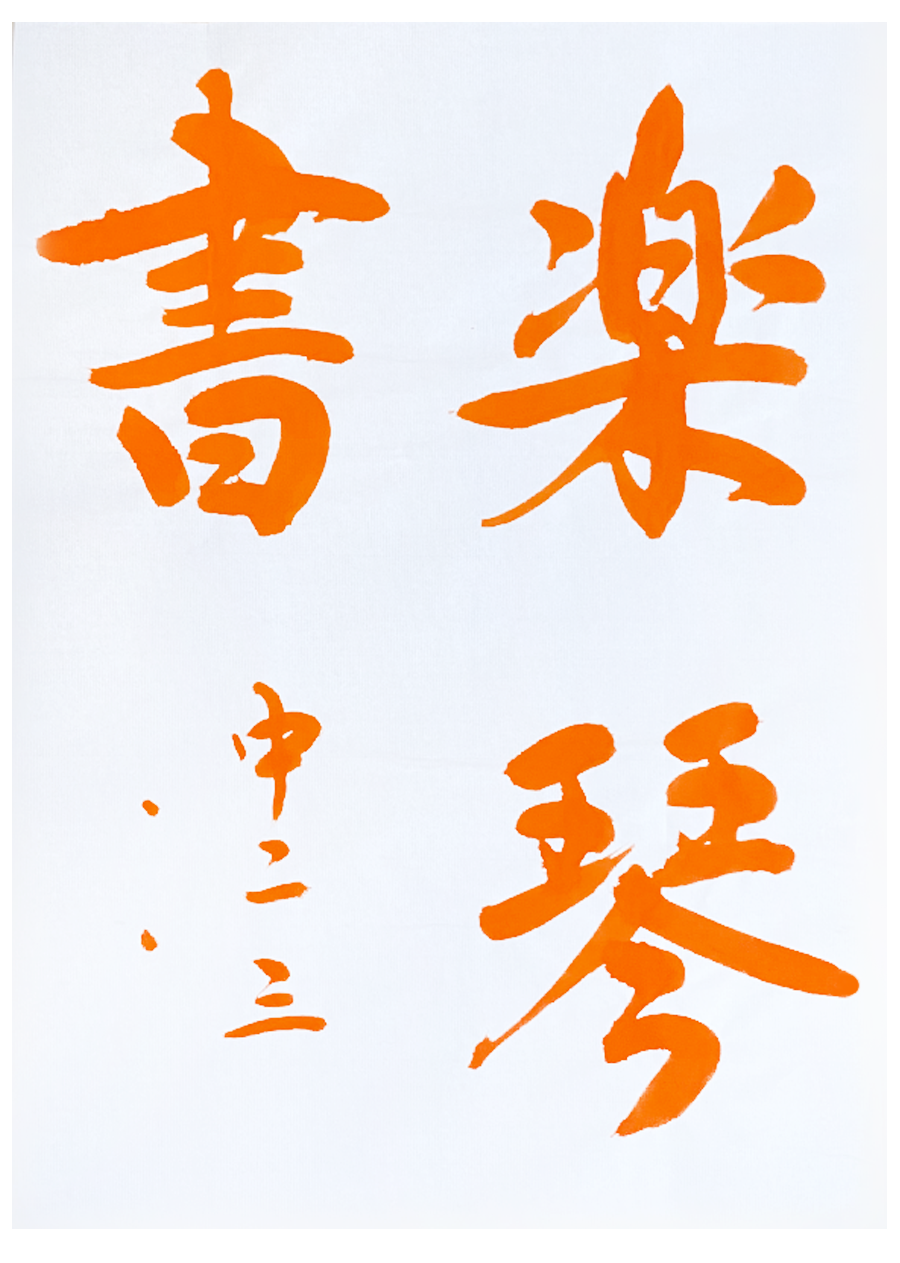 楽琴
書
申二三